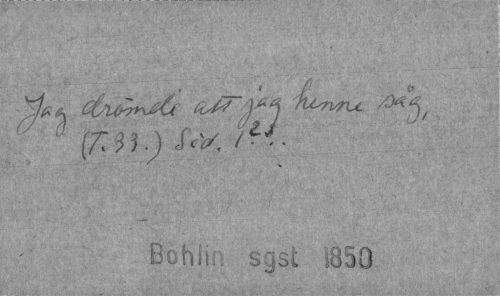 Jag drömde att jag henne såg,
(T. 33.) Sid.
Bohlin sgst 1850